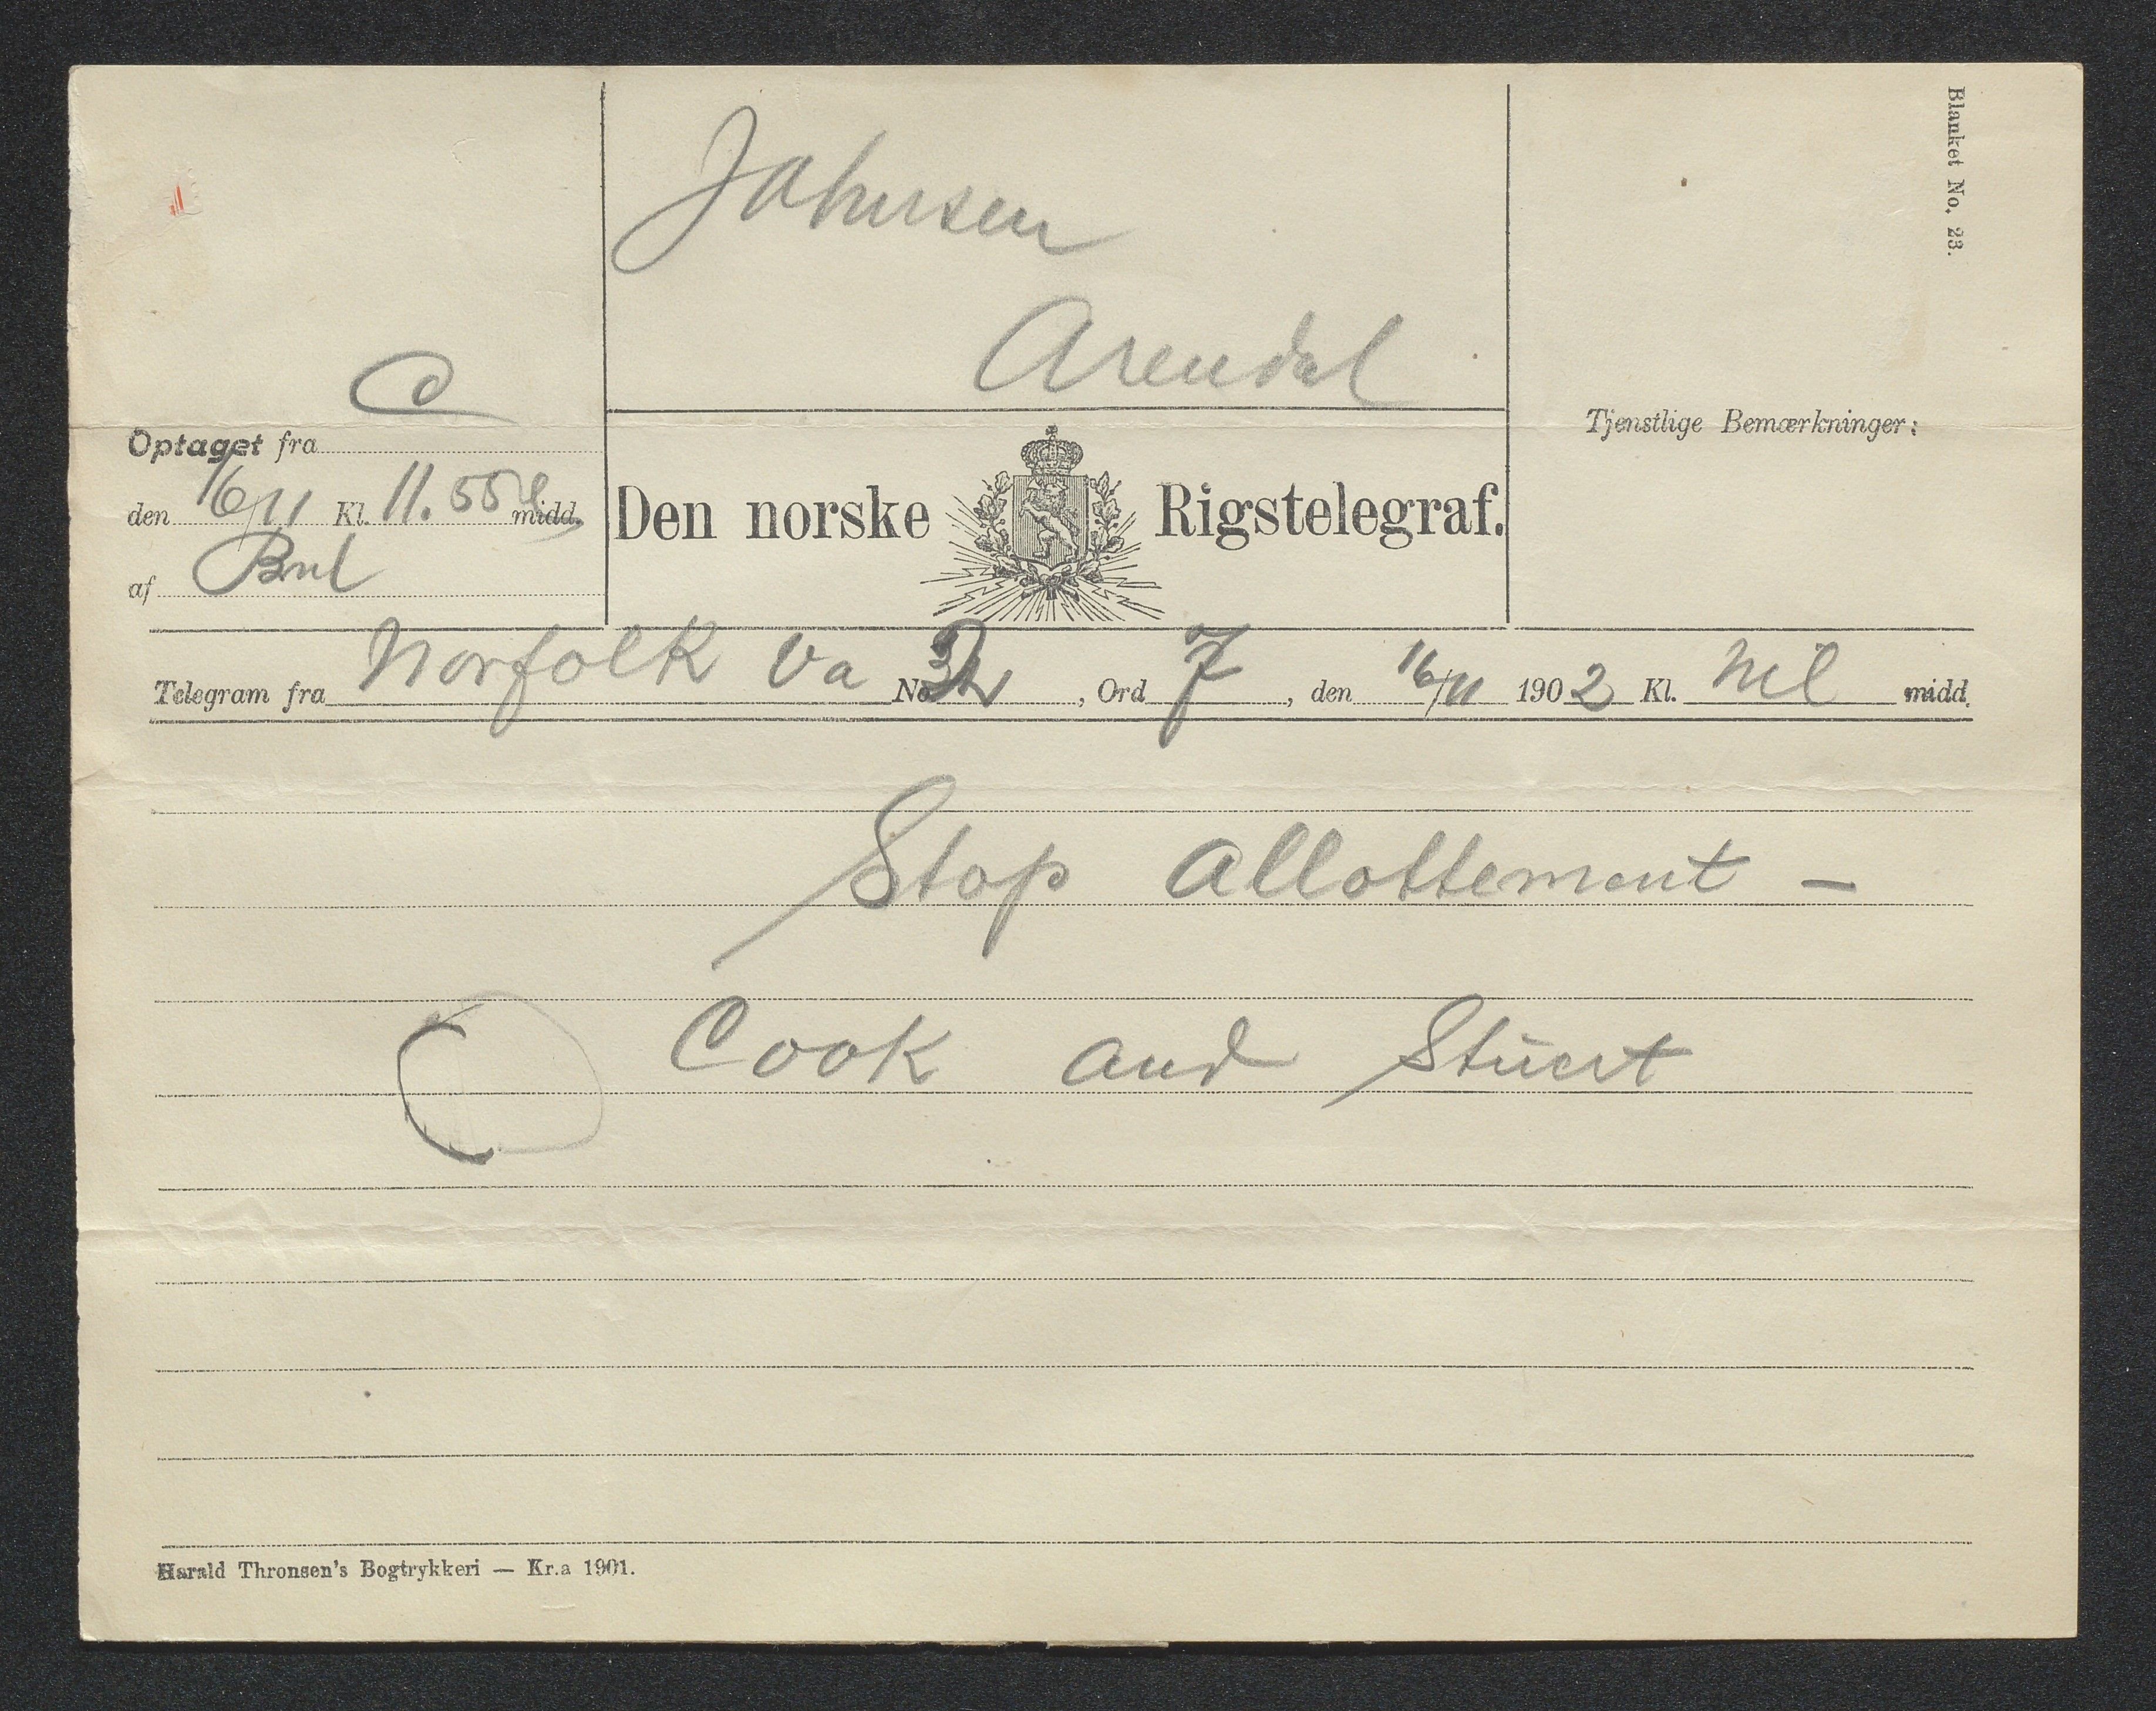 Blanket No. 23.
Johnsen
Arendal
Optaget fra C
den 16/11 Kl. 11.55 midd.
af
Den norske Rigstelegraf.
Tjenstlige Bemærkninger:
Telegram fra Norfolk Va No , Ord 7, den 16/11 1902 Kl. midd.
Stop allottement —
Cook and Stuert
Harald Thronsen's Bogtrykkeri — Kr.a 1901.